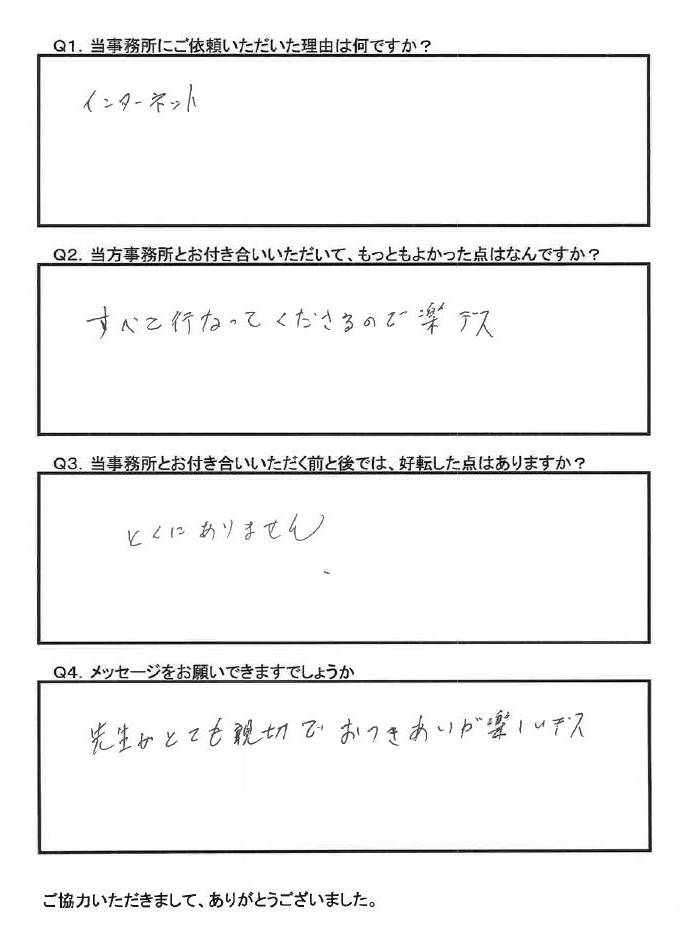 Q1. 当事務所にご依頼いただいた理由は何ですか？
インターネット
Q2. 当方事務所とお付き合いいただいて、もっともよかった点はなんですか？
すべて行なってくださるので楽デス
Q3. 当事務所とお付き合いいただく前と後では、好転した点はありますか？
とくにありません
Q4. メッセージをお願いできますでしょうか
先生がとても親切でおつきあいが楽しいデス
ご協力いただきまして、ありがとうございました。